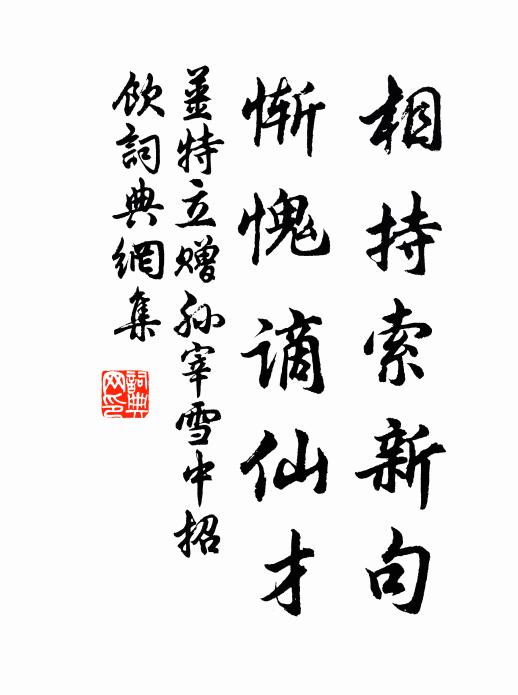 相持索新句
慚愧謫仙才
姜特立赠孙宰雪中招
飲詞典網集
詞典网印